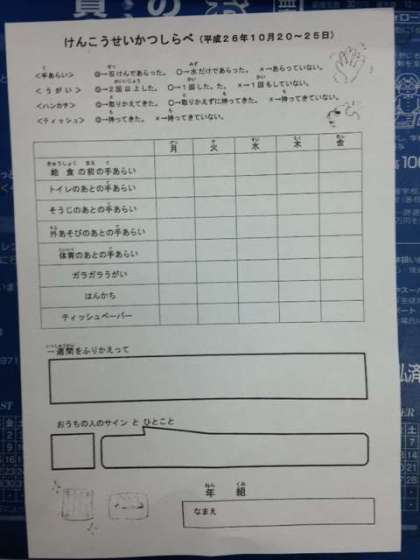 けんこうせいかつしらべ（平成２６年１０月２０～２５日）
＜手あらい＞ ◎→石けんであらった。 ○→水だけであらった。 ×→あらっていない。
＜うがい＞ ◎→２回以上した。 ○→１回した。た。 ×→１回もしていない。
＜ハンカチ＞ ◎→取りかえてきた。 ○→取りかえずに持ってきた。 ×→持ってきていない。
＜ティッシュ＞ ◎→持ってきた。 ×→持ってきていない。
月 火 水 木 金
給食の前の手あらい
トイレのあとの手あらい
そうじのあとの手あらい
外あそびのあとの手あらい
体育のあとの手あらい
ガラガラうがい
はんかち
ティッシュペーパー
一週間をふりかえって
おうちの人のサイン と ひとこと
年 組
なまえ